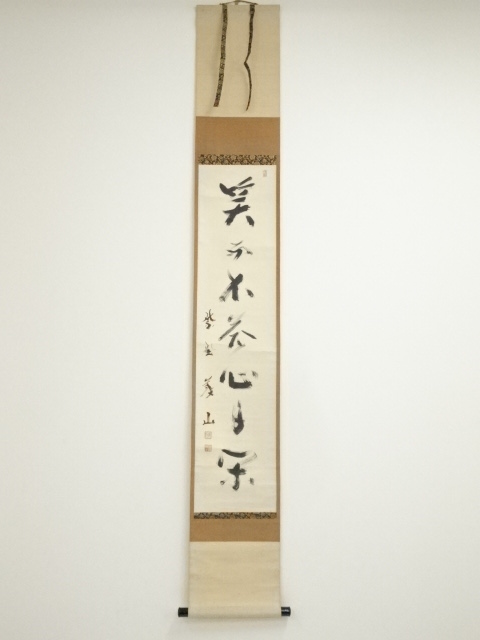 笑而不答心自閑
紫野義山